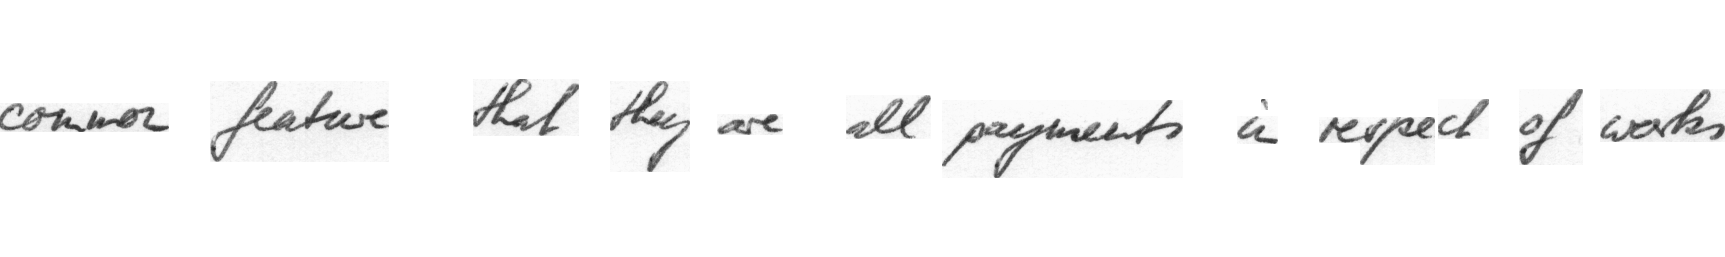 common feature that they are all payments in respect of works